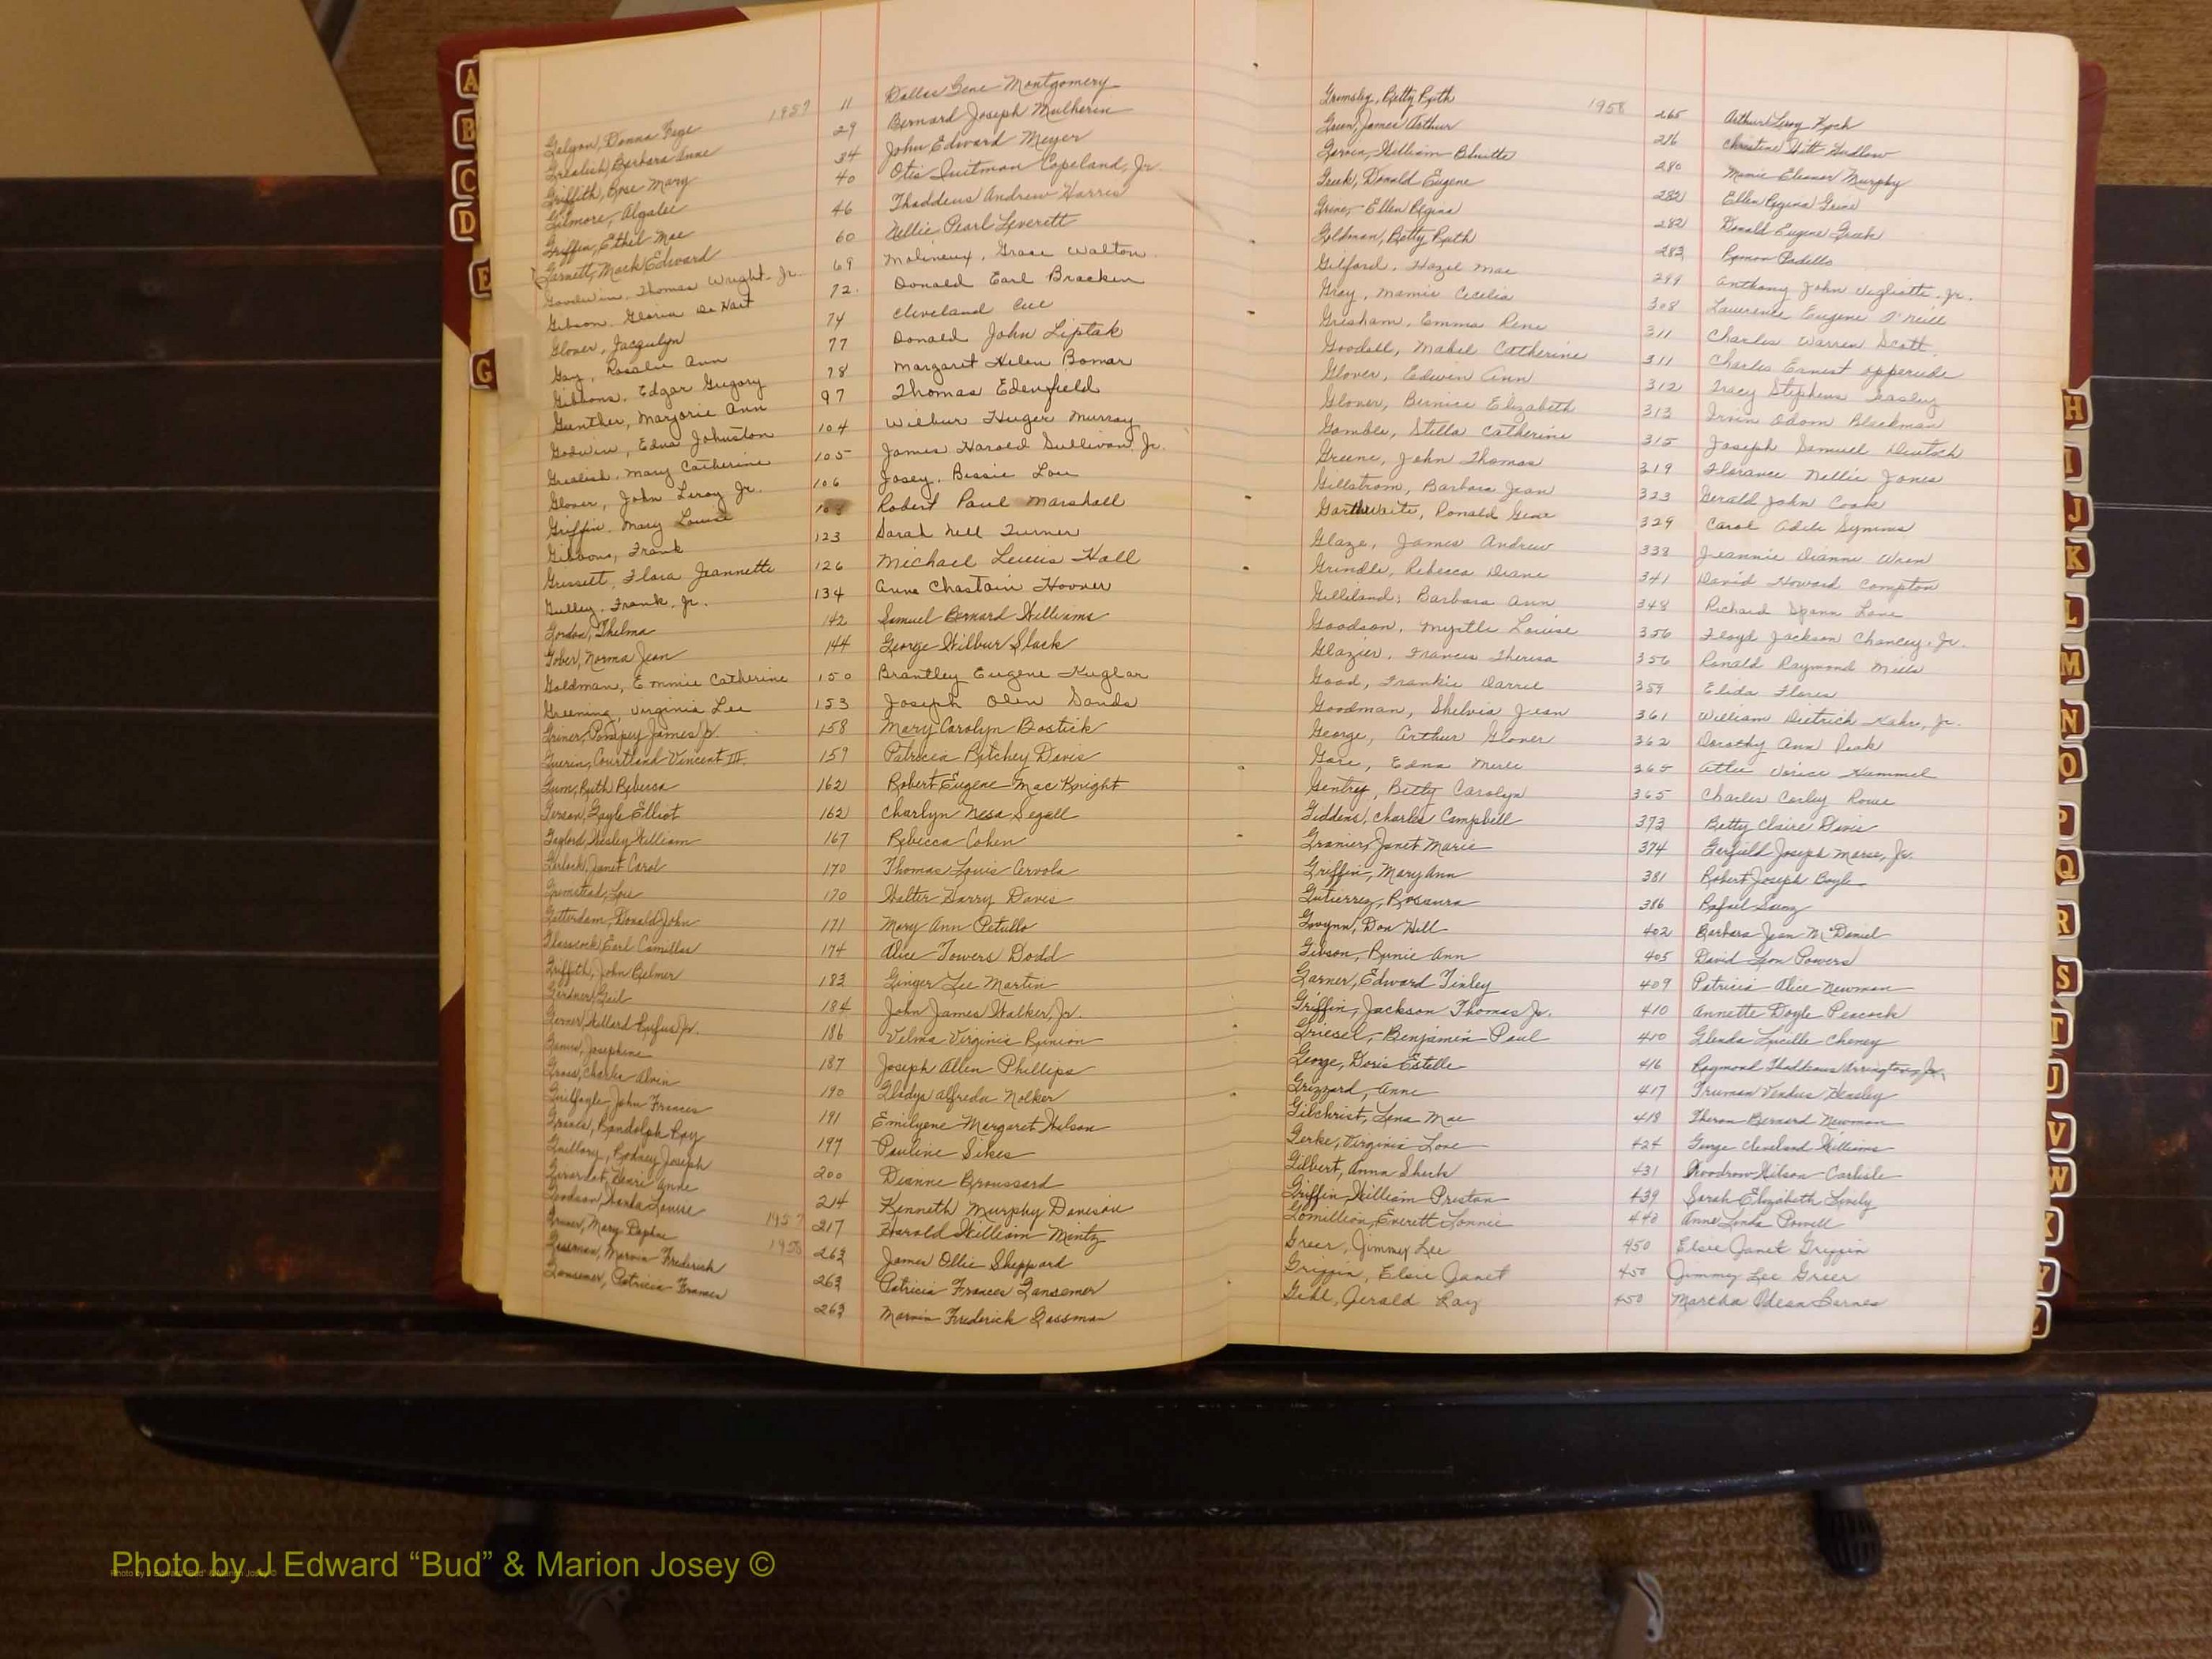 A
B
C
D
E
G
1957
Galyon, Donna Faye 11 Dallas Gene Montgomery
Grealish, Barbara Anne 29 Bernard Joseph Mulherin
Griffith, Rose Mary 34 John Edward Meyer
Gilmore, Algalee 40 Otis Quitman Copeland, Jr
Griffin, Ethel Mae 46 Thaddeus Andrew Harris
Garnett, Mack Edward 60 Nellie Pearl Leverett
Goodwin, Thomas Wright, Jr. 69 Molineux, Grace Walton
Gibson, Gloria De Hart 72 Donald Earl Bracken
Glover, Jacqulyn 74 Cleveland Cue
Gay, Rosalie Ann 77 Donald John Liptak
Gibbons, Edgar Gregory 78 Margaret Helen Bomar
Gunther, Marjorie Ann 97 Thomas Edenfield
Godwin, Edna Johnston 104 Wilbur Huger Murray
Grealish, Mary Catherine 105 James Harold Sullivan, Jr.
Glover, John Leroy Jr. 106 Josey, Bessie Lou
Griffin, Mary Louise Robert Paul Marshall
Gibbons, Frank 123 Sarah Nell Turner
Grissett, Flora Jeannette 126 Michael Lewis Hall
Gulley, Frank, Jr. 134 Anne Chastain Hoover
Gordon, Thelma 142 Samuel Bernard Williams
Gober, Norma Jean 144 George Wilbur Slack
Goldman, Emmie Catherine 150 Brantley Eugene Kuglar
Greening, Virginia Lee 153 Joseph Olen Sands
Griner, Pompey James Jr. 158 Mary Carolyn Bostick
Guerin, Courtland Vincent III. 159 Patricia Ritchey Davis
Gum, Ruth Rebecca 162 Robert Eugene MacKnight
Gerson, Gayle Elliot 162 Charlyn Nesa Segall
Gaylord, Wesley William 167 Rebecca Cohen
Gerlock, Janet Carol 170 Thomas Louis Arvola
Grimstead, Lois 170 Walter Harry Davis
Gotterdam, Donald John 171 Mary Ann Petullo
Glasscock, Earl Camillus 174 Alice Towers Dodd
Griffith, John Belmer 183 Ginger Lee Martin
Gardner, Gail 184 John James Walker, Jr.
Garner, Willard Rufus Jr. 186 Velma Virginia Runion
Josephine 187 Joseph Allen Phillips
Gross, Charles Alvin 190 Gladys Alfreda Nolker
Guilfoyle, John Frances 191 Emilyene Margaret Wilson
Graves, Randolph Ray 197 Pauline Sikes
Guillory, Rodney Joseph 200 Dianne Broussard
Girardot, Henri Anne 214 Kenneth Murphy Davison
Goodson, Wanda Louise 1957 217 Harold William Mintz
Griner, Mary Daphne 1958 263 James Ollie Sheppard
Gassman, Marvin Frederick 263 Patricia Frances Gansemer
Gansemer, Patricia Frances 263 Marvin Frederick Gassman
Grimsley, Betty Ruth 1958 265 Arthur Leroy Koch
Green, James Arthur 216 Christine Witt Hudlow
Garvin, William 280 Mamie Eleanor Murphy
Greek, Donald Eugene 282 Ellen Regina Greine
Greine, Ellen Regina 282 Donald Eugene Greek
Goldman, Betty Ruth 283 Ramon Padillo
Gilford, Hazel Mae 299 Anthony John Jr.
Gray, Mamie Cecelia 308 Lawrence Eugene O'Neill
Gresham, Emma Rene 311 Charles Warren Scott
Goodell, Mabel Catherine 311 Charles Ernest
Glover, Edwin Ann 312 Tracy Stephens Teasley
Glover, Bernice Elizabeth 313 Irvin Odom Blackman
Gamble, Stella Catherine 315 Joseph Samuel Deutsch
Greene, John Thomas 319 Florance Nellie Jones
Gillstrom, Barbara Jean 323 Gerald John Cook
Garthwaite, Ronald Gene 329 Carol Adele Symms
Glaze, James Andrew 338 Jeannie Dianne Wren
Grindle, Rebecca Diane 341 David Howard Compton
Gilleland, Barbara Ann 348 Richard Spann Lane
Goodson, Myrtle Louise 356 Floyd Jackson Chancey, Jr.
Glazier, Frances Theresa 356 Ronald Raymond Mills
Good, Frankie Darrel 359 Elida Flores
Goodman, Shelvia Jean 361 William Dietrich Kahn, Jr.
George, Arthur Glover 362 Dorothy Ann Peak
Gore, Edna Merle 365 Hummel
Gentry, Betty Carolyn 365 Charles Corley Rowe
Giddens, Charles Campbell 373 Betty Claire Davis
Granier, Janet Marie 374 Garfield Joseph Morse, Jr.
Griffin, Mary Ann 381 Robert Joseph Boyle
Gutierrez, Rosaura 386 Rafael Saenz
Gwynn, Don Hill 402 Barbara Jean McDaniel
Gibson, Bynie Ann 405 David Leon Powers
Garner, Edward Finley 409 Patricia Alice Newman
Griffin, Jackson Thomas Jr. 410 Annette Doyle Peacock
Griesel, Benjamin Paul 410 Glenda Lucille Cheney
George, Doris Estelle 416 Raymond Thaddeaus Arrington Jr.
Grizzard, Anne 417 Truman Vendus Hensley
Gilchrist, Lena Mae 418 Theron Bernard Newman
Gerke, Virginia Love 424 George Cleveland Williams
Gilbert, Anna Sherk 431 Woodrow Wilson Carlisle
Griffin, William Preston 439 Sarah Elizabeth Lively
Gomillion, Everett Lonnie 443 Anne Linda Powell
Greer, Jimmy Lee 450 Elsie Janet Griffin
Griffin, Elsie Janet 450 Jimmy Lee Greer
Gehl, Jerald Ray 450 Martha Odean Barnes
H
I
J
K
L
M
N
O
P
Q
R
S
T
U
V
W
X
Y
Z
Photo by J Edward “Bud” & Marion Josey ©
Photo by J Edward “Bud” & Marion Josey ©